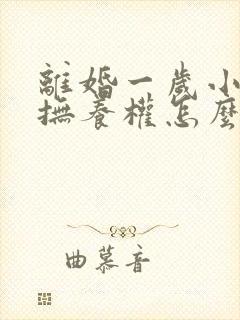 離婚一歲小
撫養權怎麼
曲慕音